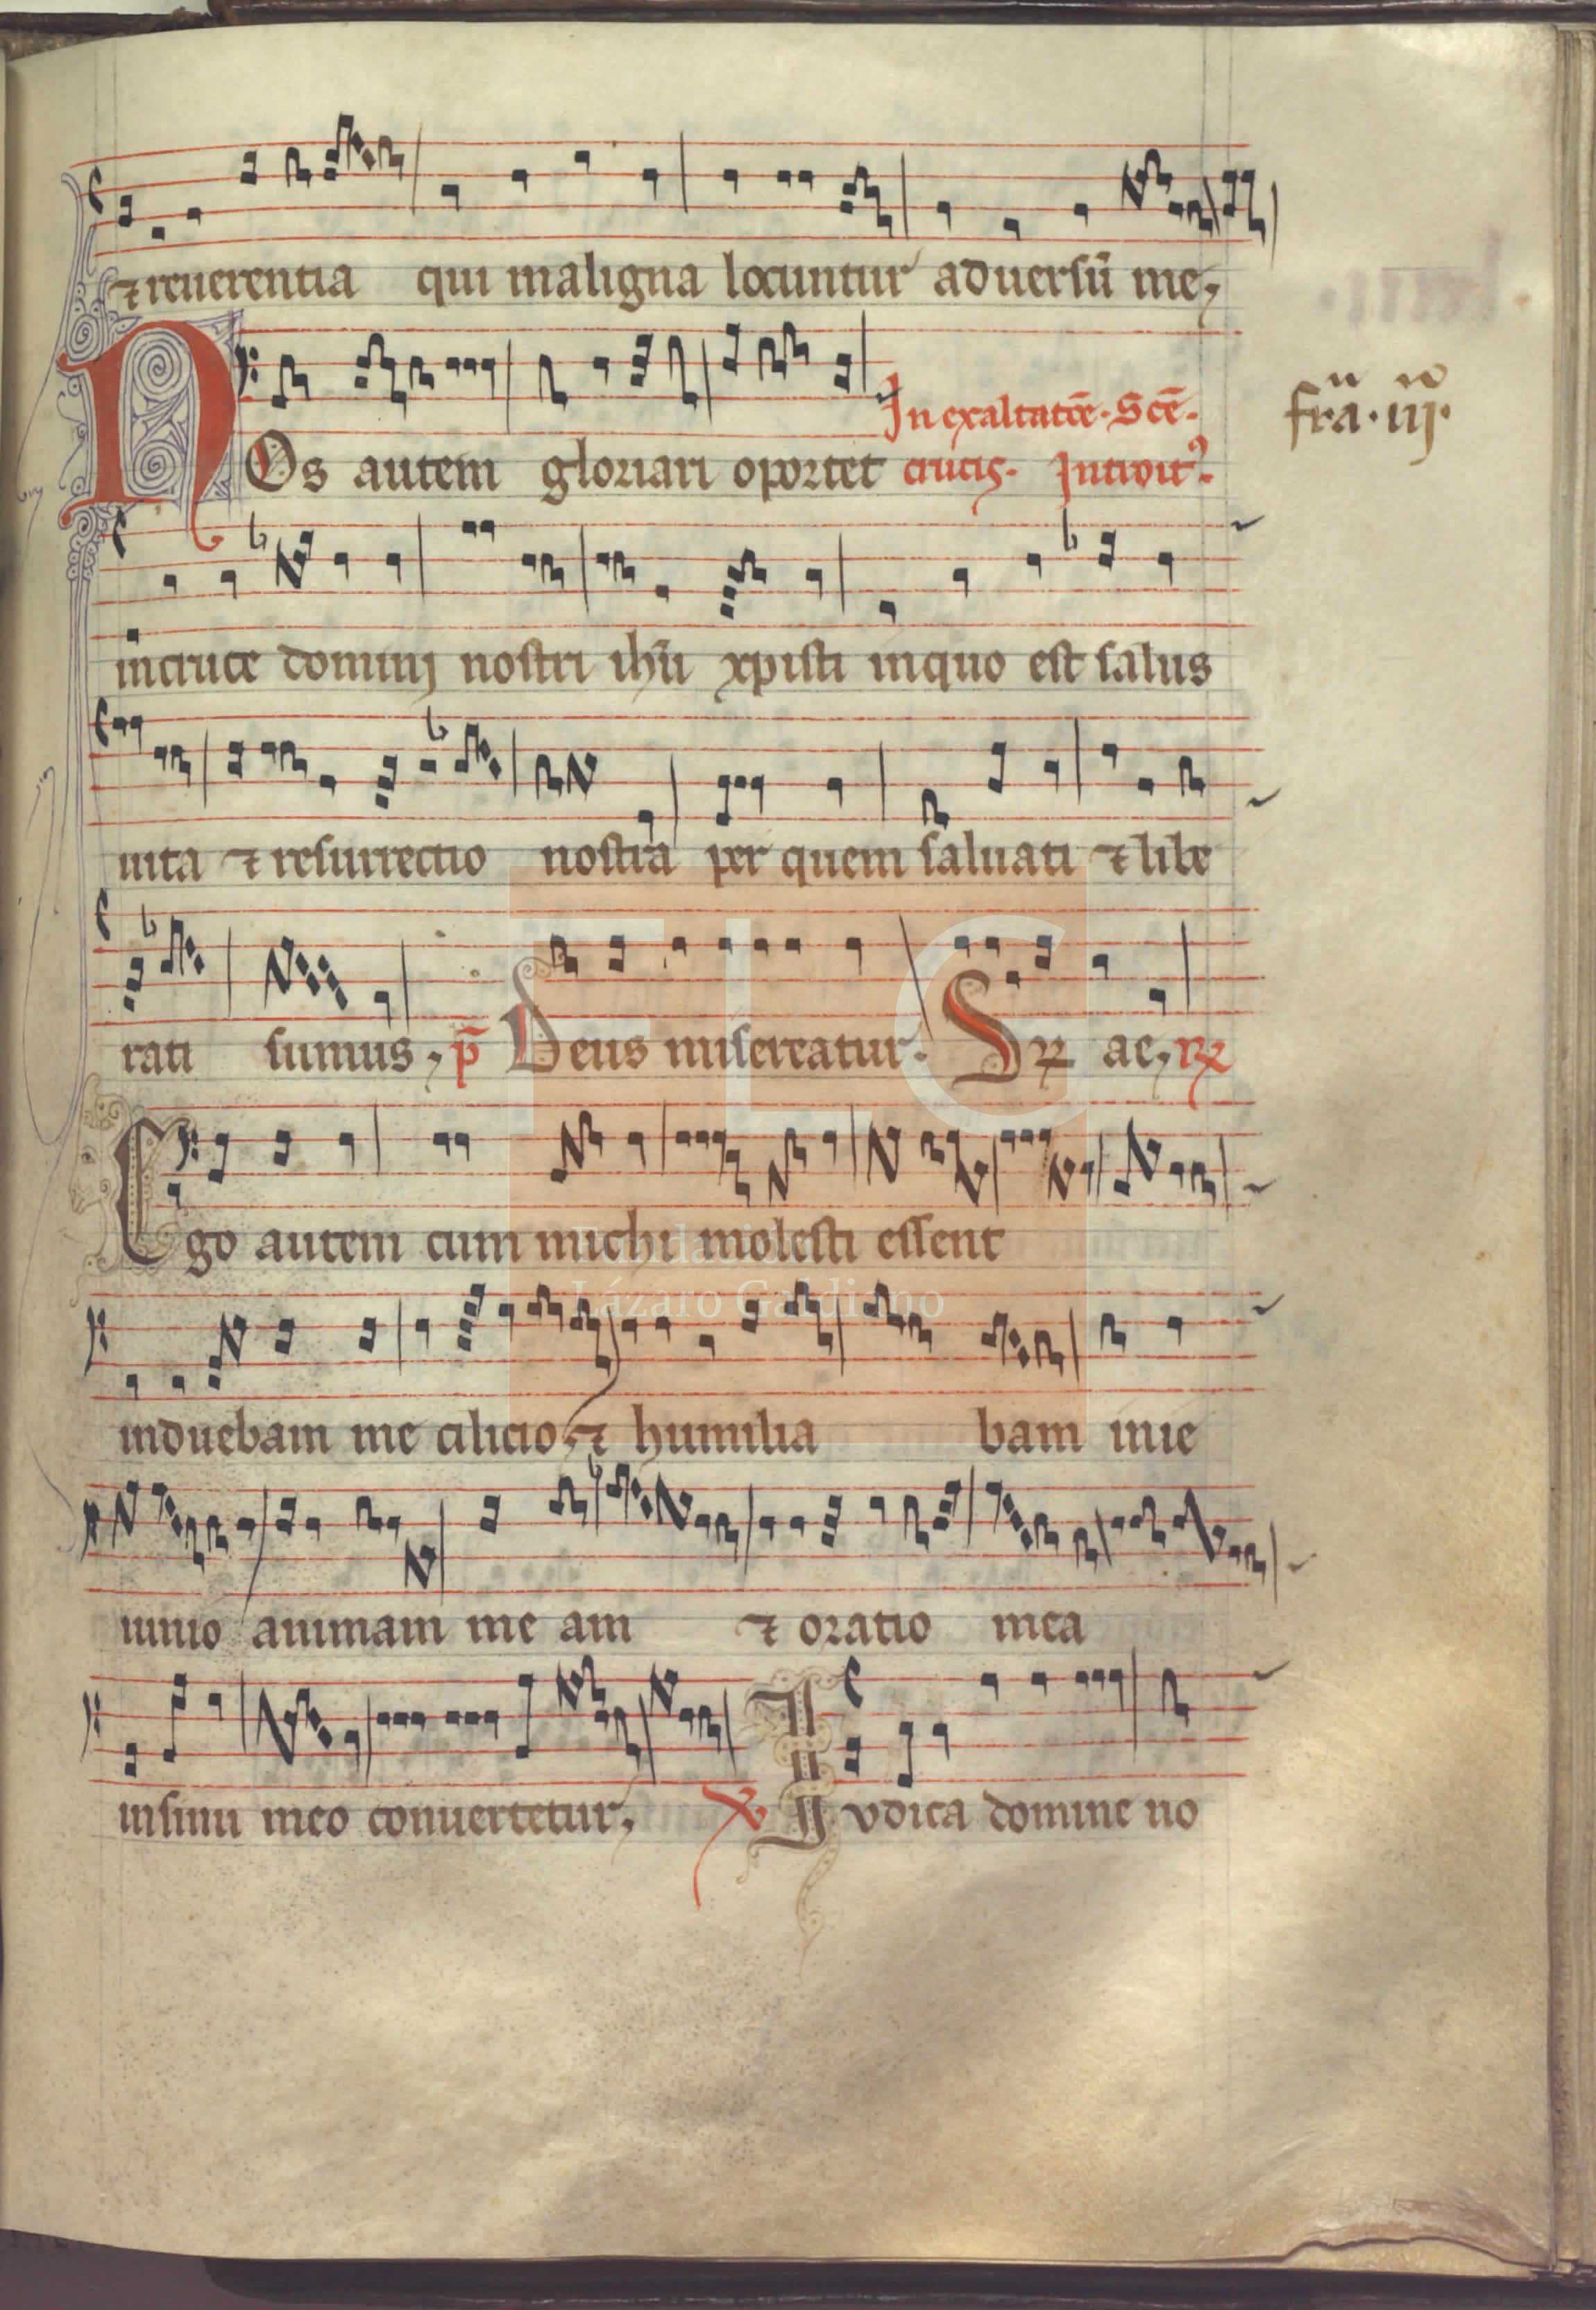 ⁊ reuerentia qui maligna locuntur aduersū me,
In exaltatōe · Scē ·
fr̄a · iij ·
NOs autem gloriari oportet crucis · Introit⁹ ·
in cruce dominj nostri ihū xpisti in quo est salus
uita ⁊ resurrectio nostra per quem saluati ⁊ libe
rati sumus, p̄ Deus misereatur · Sꝝ ae, ℞
Ego autem cum michi molesti essent
induebam me cilicio, ⁊ humilia bam in ie
iunio animam me am ⁊ oratio mea
in sinu meo conuertetur, ℣ Iudica domine no
FLG
Fundación
Lázaro Galdiano